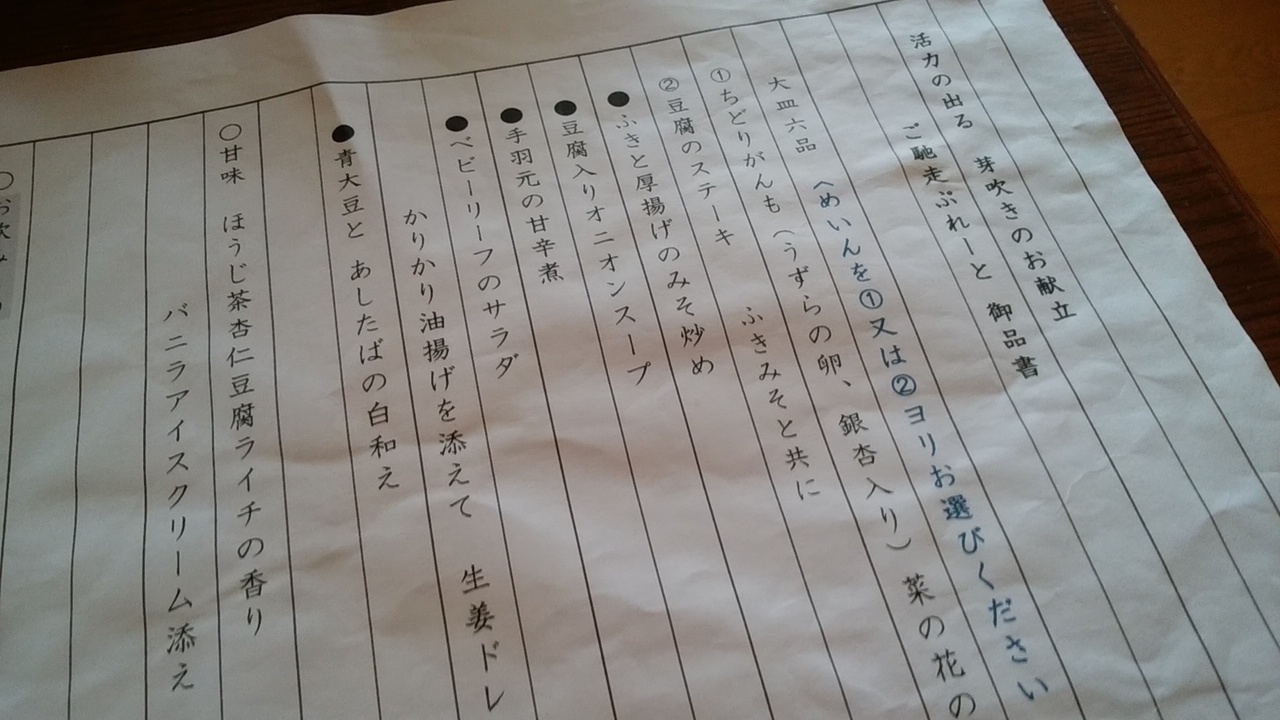 活力の出る 芽吹きのお献立
ご馳走ぷれーと 御品書
大皿六品 (めいんを①又は②ヨリお選びください
①ちどりがんも(うずらの卵、銀杏入り)菜の花の
ふきみそと共に
②豆腐のステーキ
●ふきと厚揚げのみそ炒め
●豆腐入りオニオンスープ
●手羽元の甘辛煮
●ベビーリーフのサラダ
かりかり油揚げを添えて 生姜ドレ
●青大豆と あしたばの白和え
○甘味 ほうじ茶杏仁豆腐ライチの香り
バニラアイスクリーム添え